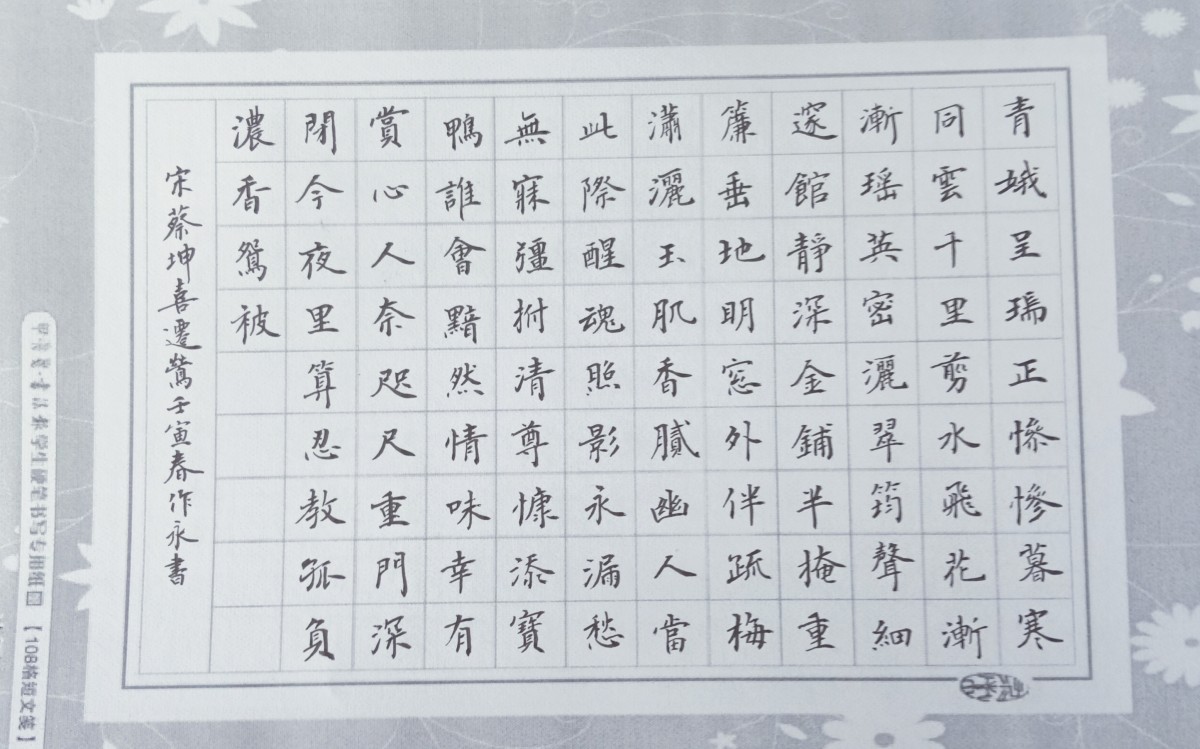 青娥呈瑞正慘慘暮寒
同雲千里剪水飛花漸
漸瑶英密灑翠筠聲細
邃館靜深金鋪半掩重
簾垂地明窓外伴疏梅
瀟灑玉肌香膩幽人當
此際醒魂照影永漏愁
無寐彊拊清尊慷添寶
鴨誰會黯然情味幸有
賞心人奈咫尺重門深
閉今夜里算忍教孤負
濃香鴛被
宋蔡坤喜遷鶯壬寅春作永書
学生硬笔书写专用纸【108格短文笺】